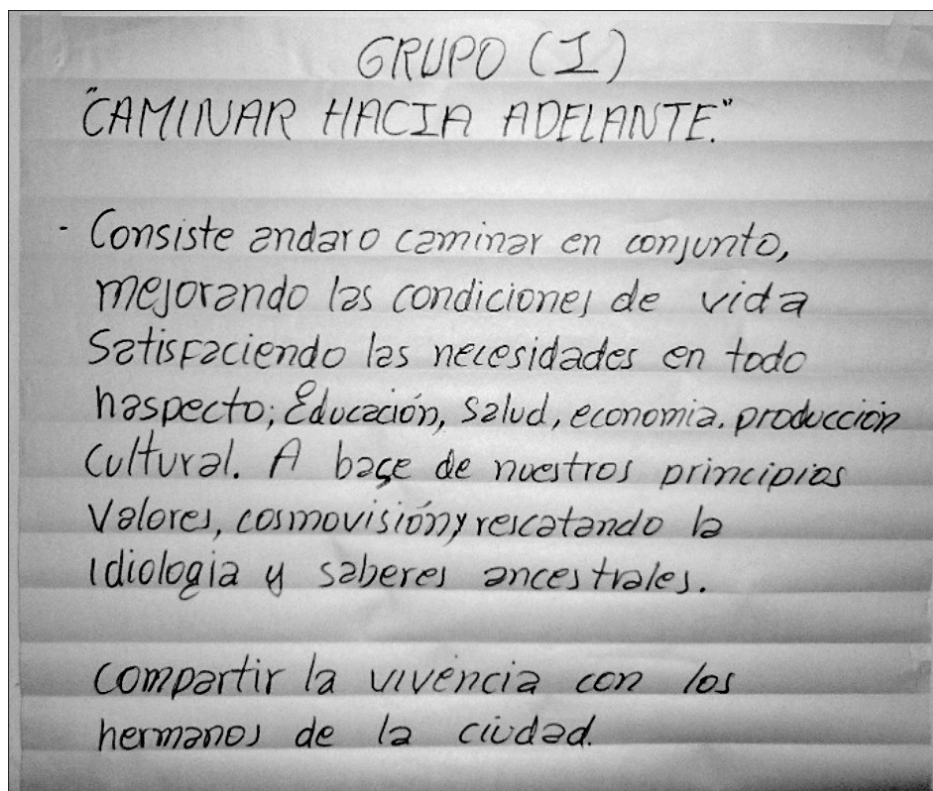 GRUPO (I)
"CAMINAR HACIA ADELANTE."
- Consiste andar o caminar en conjunto,
mejorando las condiciones de vida
Satisfaciendo las necesidades en todo
haspecto; Educación, salud, economia. producción
Cultural. A bace de nuestros principios
Valores, cosmovisión y rescatando la
idiologia y saberes ancestrales.
compartir la vivencia con los
hermanos de la ciudad.